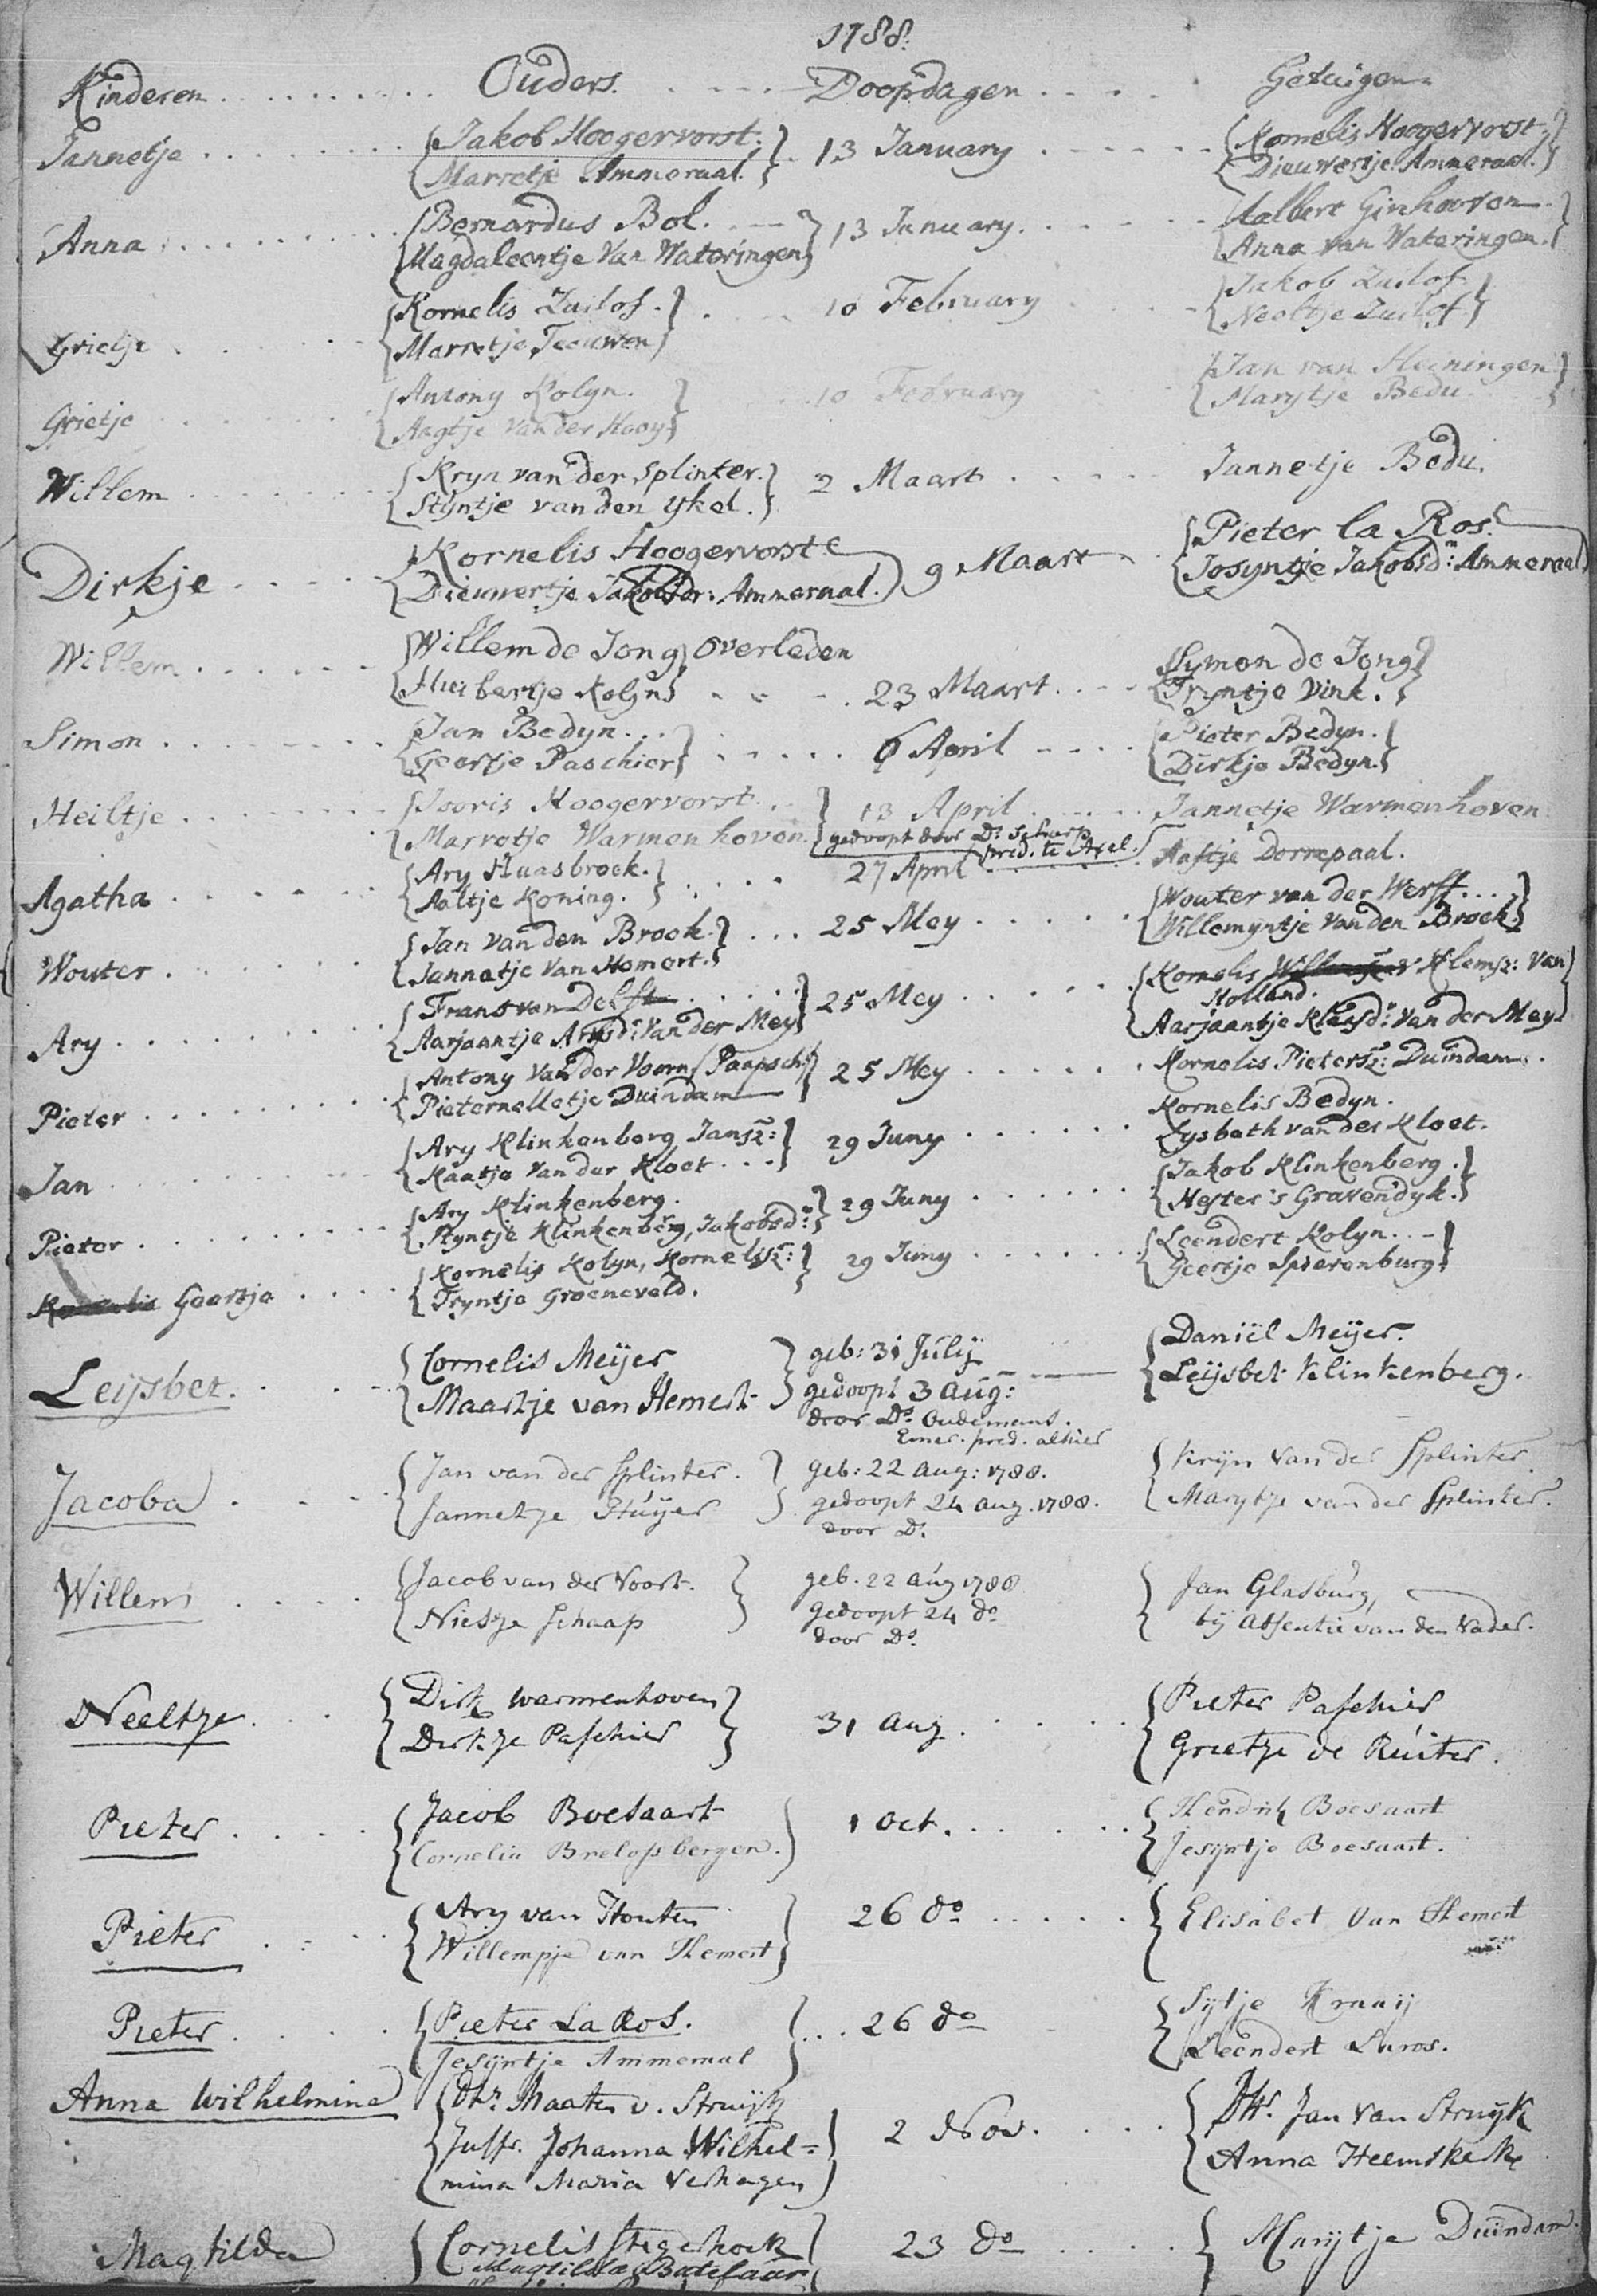 1788.
Kinderen Ouders. Doopdagen Getuigen
Jannetje Jakob Hoogervorst. 13 January Kornelis Hoogervorst.
Marretje Ammeraal. Dieuwertje Ammeraal.
Anna Bernardus Bol. 13 January. Aalbert Ginhooven
Magdaleentje Van Wateringen Anna van Wateringen.
Grietje Kornelis Zuilof. 10 February Jakob Zuilof
Marretje Teeuwen Neeltje Zuilof
Grietje Antony Kolyn. 10 February Jan van Heeningen
Aagtje van der Hooy Marytje Bedu
Willem Kryn van der Splinter. 2 Maart Jannetje Bedu.
Styntje van den ykel.
Dirkje Kornelis Hoogervorst 9 Maart Pieter la Ros.
Dieuwertje Jakobsdr: Ammeraal. Josyntje Jakobsd: Ammeraal
Willem Willem de Jong overleden Symon de Jong
Huibertje Kolyn 23 Maart. Tryntje Vink.
Simon Jan Bedyn 6 April Pieter Bedyn.
Geertje Paschier Dirkje Bedyn.
Heiltje Jooris Hoogervorst. 13 April Jannetje Warmenhoven
Marretje Warmenhoven. gedoopt door Ds. Scharp pred. te Axel.
Agatha Ary Haasbroek. 27 April Aaftje Dorrepaal.
Aaltje Koning.
Wouter Jan van den Broek. 25 Mey Wouter van der Werff.
Jannetje Van Homert. Willemyntje van den Broek.
Ary Frans van Delft 25 Mey Kornelis Klemsz: Van
Holland.
Aarjaantje Arysd: Van der Mey Aarjaantje Klaasd: Van der Mey
Pieter Antony Van der Voorn (Paapsch) 25 Mey Kornelis Pietersz: Duindam.
Pieternelletje Duindam
Jan Ary Klinkenberg Jansz: 29 Juny Kornelis Bedyn.
Kaatje Van der Kloet Lysbeth van der Kloet.
Pieter Ary Klinkenberg. 29 Juny Jakob Klinkenberg.
Styntje Klinkenberg, Jakobsd: Hester 's Gravendyk.
Kornelis Geertje Kornelis Kolyn, Kornelisz: 29 Juny Leendert Kolyn.
Tryntje Groeneveld. Geertje Spierenburg
Leijsbet. Cornelis Meijer geb: 31 Julij Daniël Meijer.
Maartje van Hemert gedoopt 3 aug: Leijsbet Klinkenberg.
door Ds. Oudemans.
Emer. pred. alhier
Jacoba Jan van der Splinter. geb: 22 aug: 1788. Krijn van der Splinter.
Jannetje Stuijer gedoopt 24 aug. 1788. Marytje van der Splinter.
door Ds.
Willem Jacob van der Voort. geb. 22 aug 1788 Jan Glasburg,
Niesje Schaap gedoopt 24 do bij absentie van den Vader.
door Ds.
Neeltje Dirk Warmenhoven 31 aug. Pieter Paschier
Dirkje Paschier Grietje de Ruiter.
Pieter Jacob Boesaart 1 Oct. Hendrik Boesaart
Cornelia Brelofsbergen. Jesijntje Boesaart.
Pieter Ary van Houten 26 do Elisabet Van Hemert
Willempje van Hemert
Pieter Pieter La Ros. 26 do Sijtje Kraaij
Jesijntje Ammeraal Leendert Laros.
Anna Wilhelmina Dhr. Maarten v. Struijk 2 Nov. Dhr. Jan Van Struijk
Juffr. Johanna Wilhel- Anna Heemskerk
mina Maria Verhagen
Magtilda Cornelis Stegehoek 23 do Marijtje Duindam.
Magtilda Batelaar